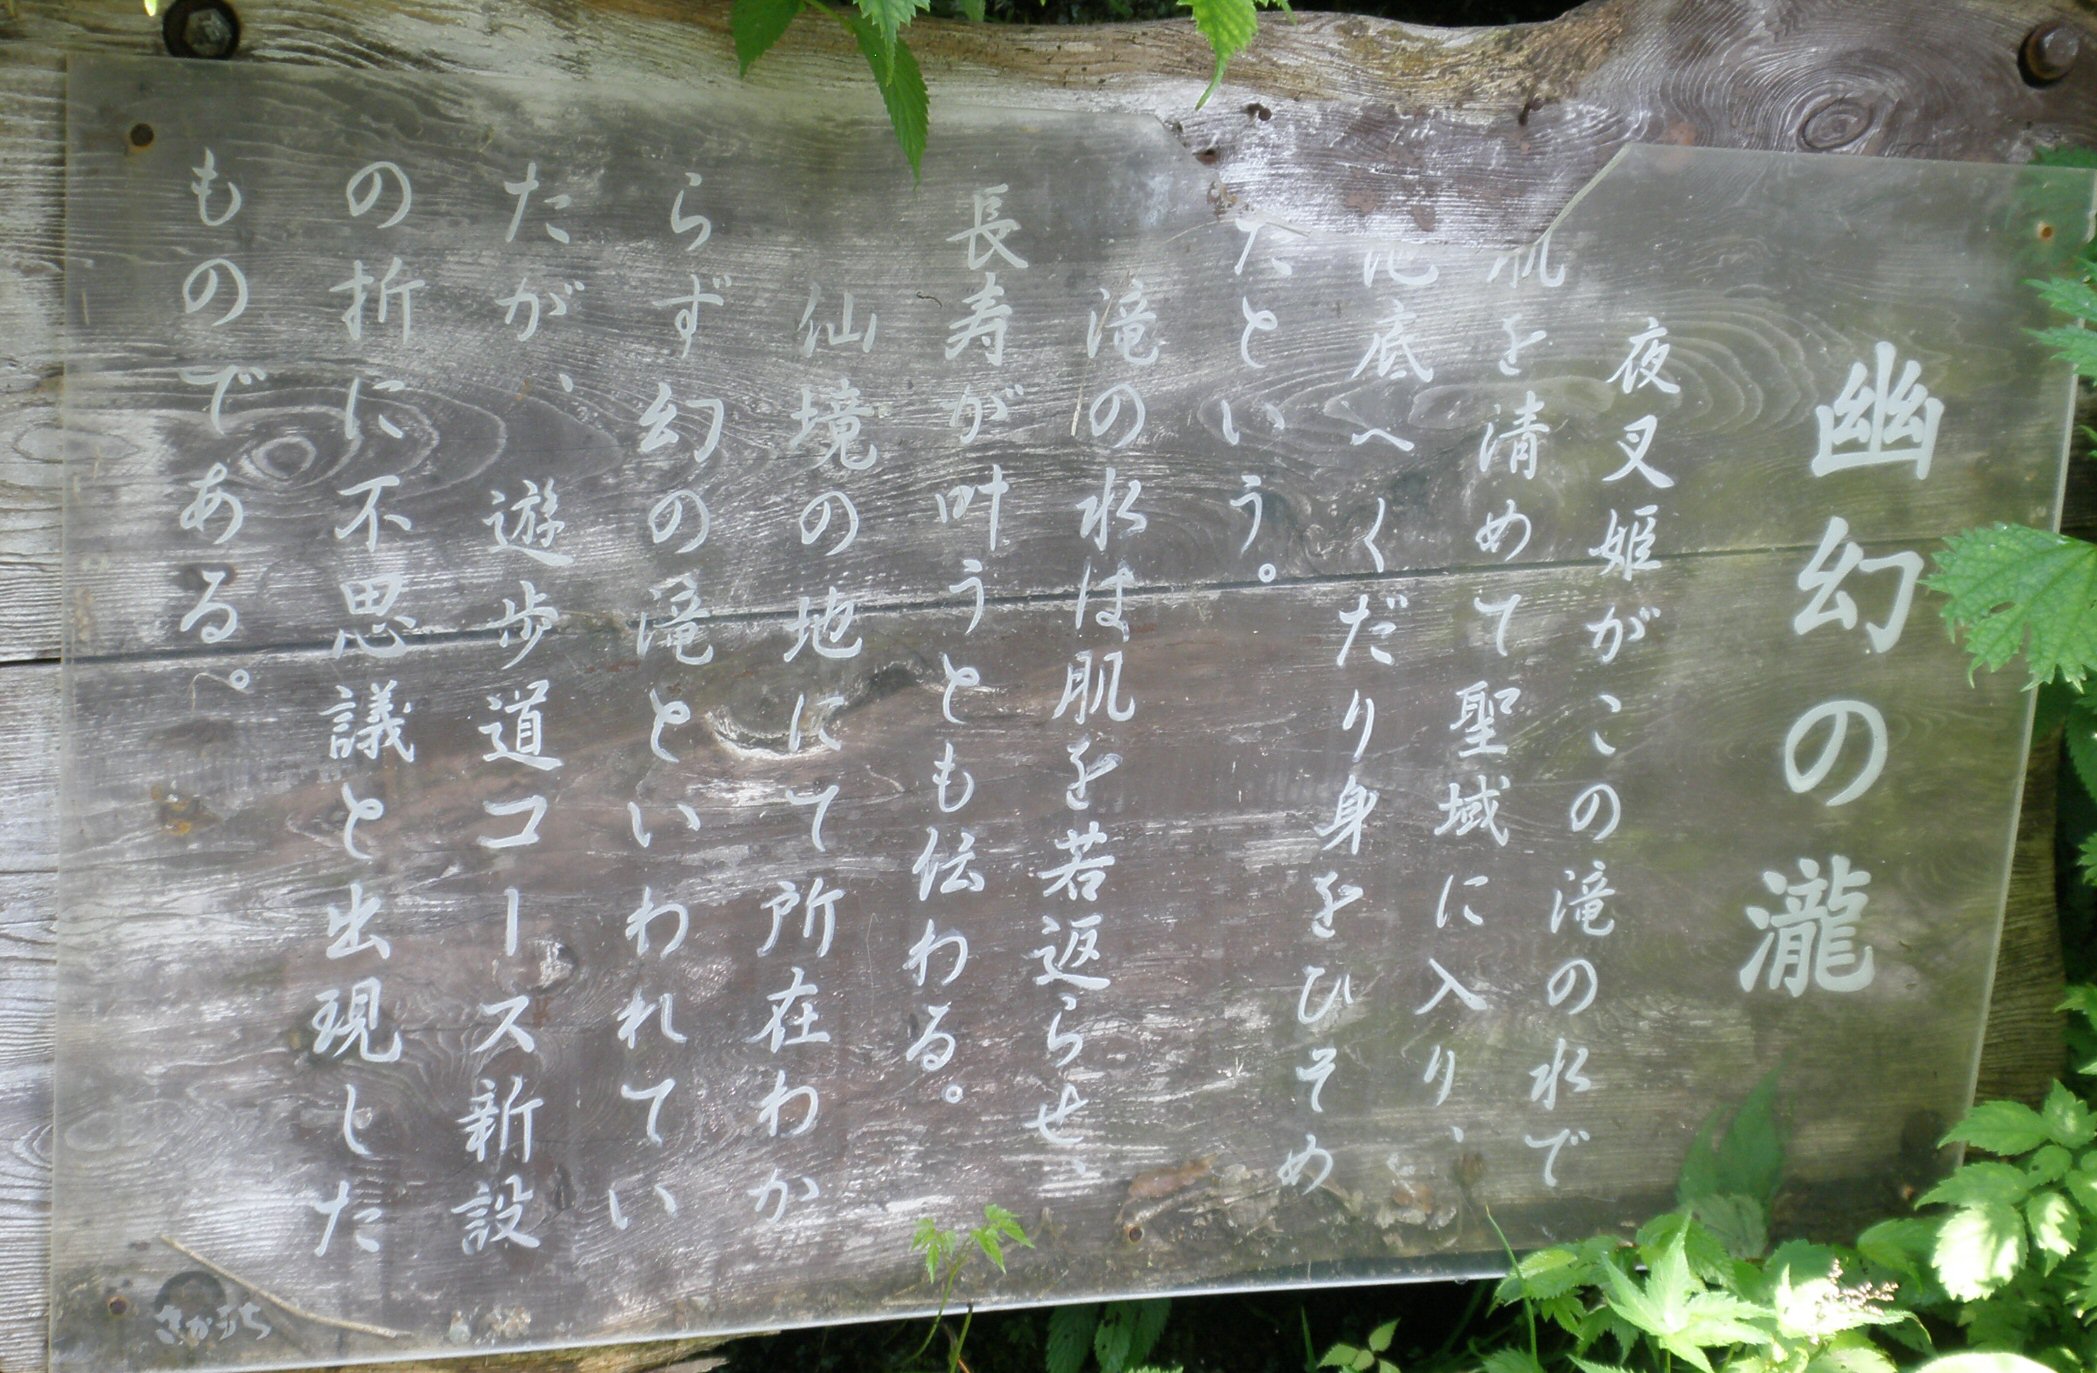 幽幻の瀧
夜叉姫がこの滝の水で
肌を清めて聖域に入り、
底へくだり身をひそめ
たという。
滝の水は肌を若返らせ、
長寿が叶うとも伝わる。
仙境の地にて所在わか
らず幻の滝といわれてい
たが、遊歩道コース新設
の折に不思議と出現した
ものである。
さかうち